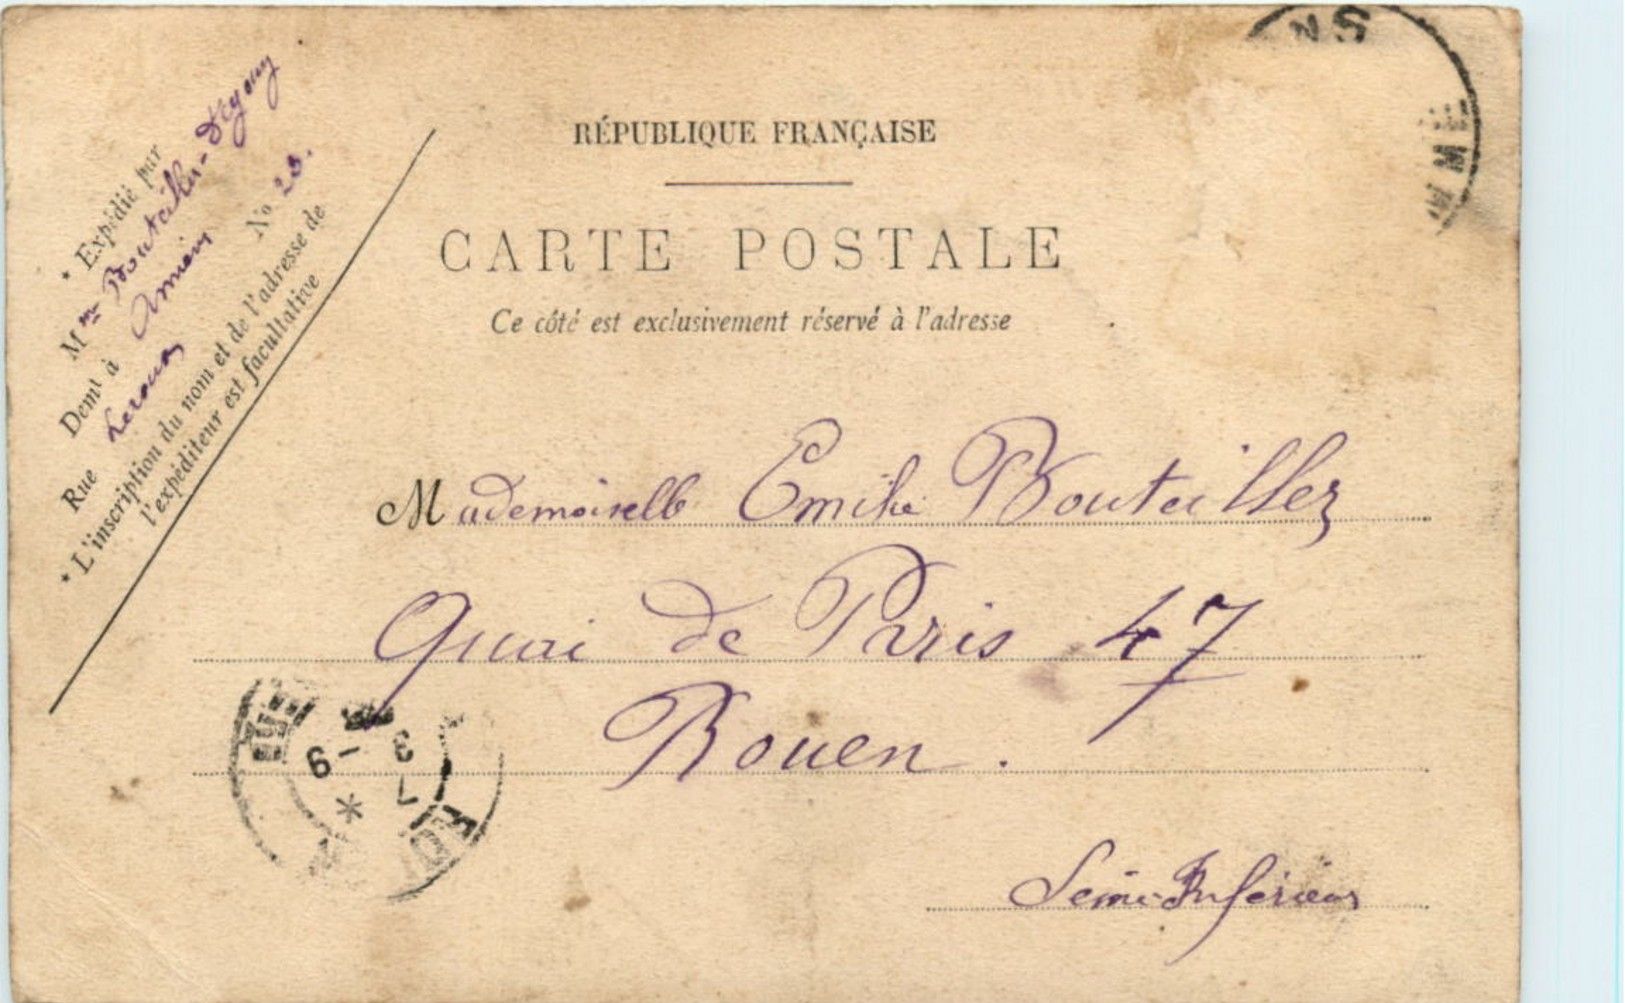 RÉPUBLIQUE FRANÇAISE
CARTE POSTALE
Ce côté est exclusivement réservé à l'adresse
* Expédié par
Mme Bouteiller-
Demt à Amiens
Rue No 28.
* L'inscription du nom et de l'adresse de
l'expéditeur est facultative
Mademoiselle Emilie Bouteiller
Quai de Paris 47
Rouen.
Seine-Inférieure
NS
MME
7
3 - 9
*